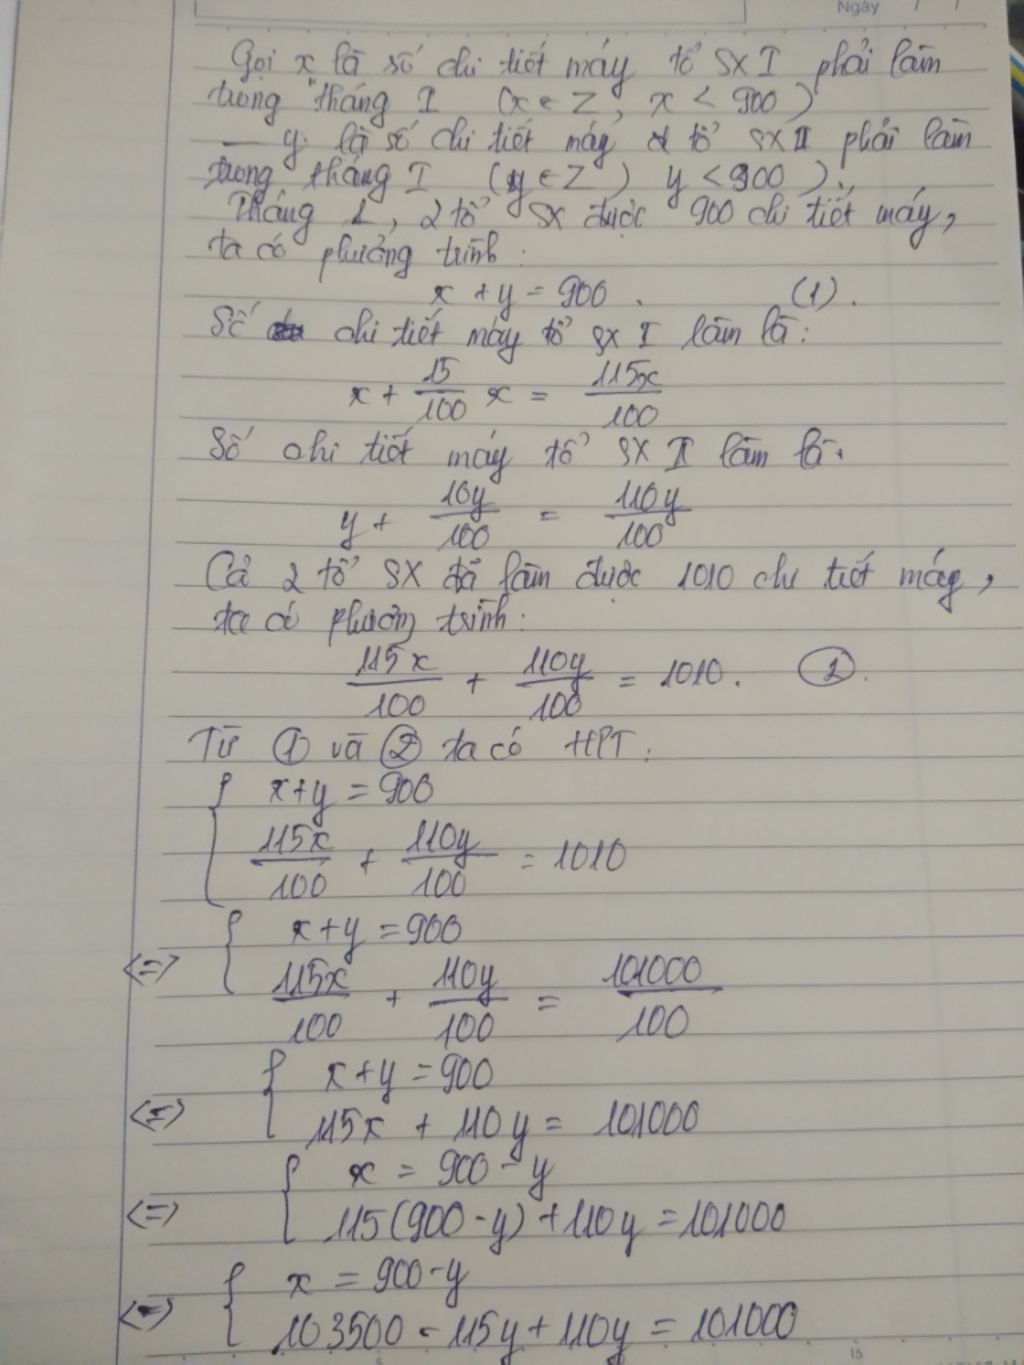 Ngày / /
Gọi x là số chi tiết máy tổ SX I phải làm
trong tháng I (x ∈ Z, x < 900)
— y là số chi tiết máy tổ SX II phải làm
trong tháng I (y ∈ Z) y < 900).
Tháng 1, 2 tổ SX được 900 chi tiết máy,
ta có phương trình:
x + y = 900 . (1).
Số chi tiết máy tổ SX I làm là:
x + 15/100 x = 115x/100
Số chi tiết máy tổ SX II làm là.
y + 10y/100 = 110y/100
Cả 2 tổ SX đã làm được 1010 chi tiết máy,
ta có phương trình:
115x/100 + 110y/100 = 1010. (2).
Từ (1) và (2) ta có HPT:
{ x+y = 900
115x/100 + 110y/100 = 1010
<=> { x+y = 900
115x/100 + 110y/100 = 101000/100
<=> { x+y = 900
115x + 110y = 101000
<=> { x = 900 - y
115(900 - y) + 110y = 101000
<=> { x = 900 - y
103500 - 115y + 110y = 101000
15